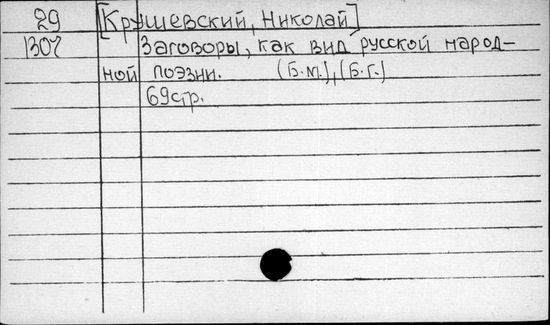 29 [Крушевский, Николай]
1307 Заговоры, как вид русской народ-
ной поэзии. (Б.м.), (Б.г.)
69стр.